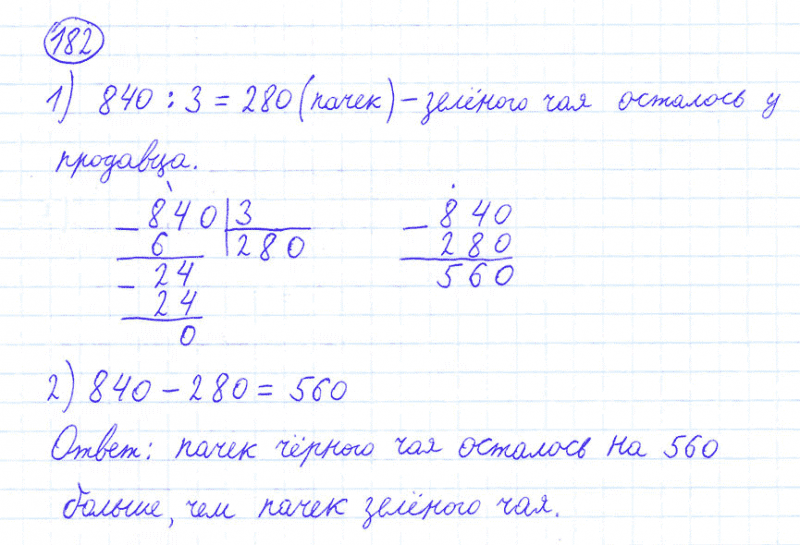 182
1) 840 : 3 = 280 (пачек) – зелёного чая осталось у
продавца.
− 840 | 3
6 | 280
− 24
24
0
− 840
280
560
2) 840 − 280 = 560
Ответ: пачек чёрного чая осталось на 560
больше, чем пачек зелёного чая.